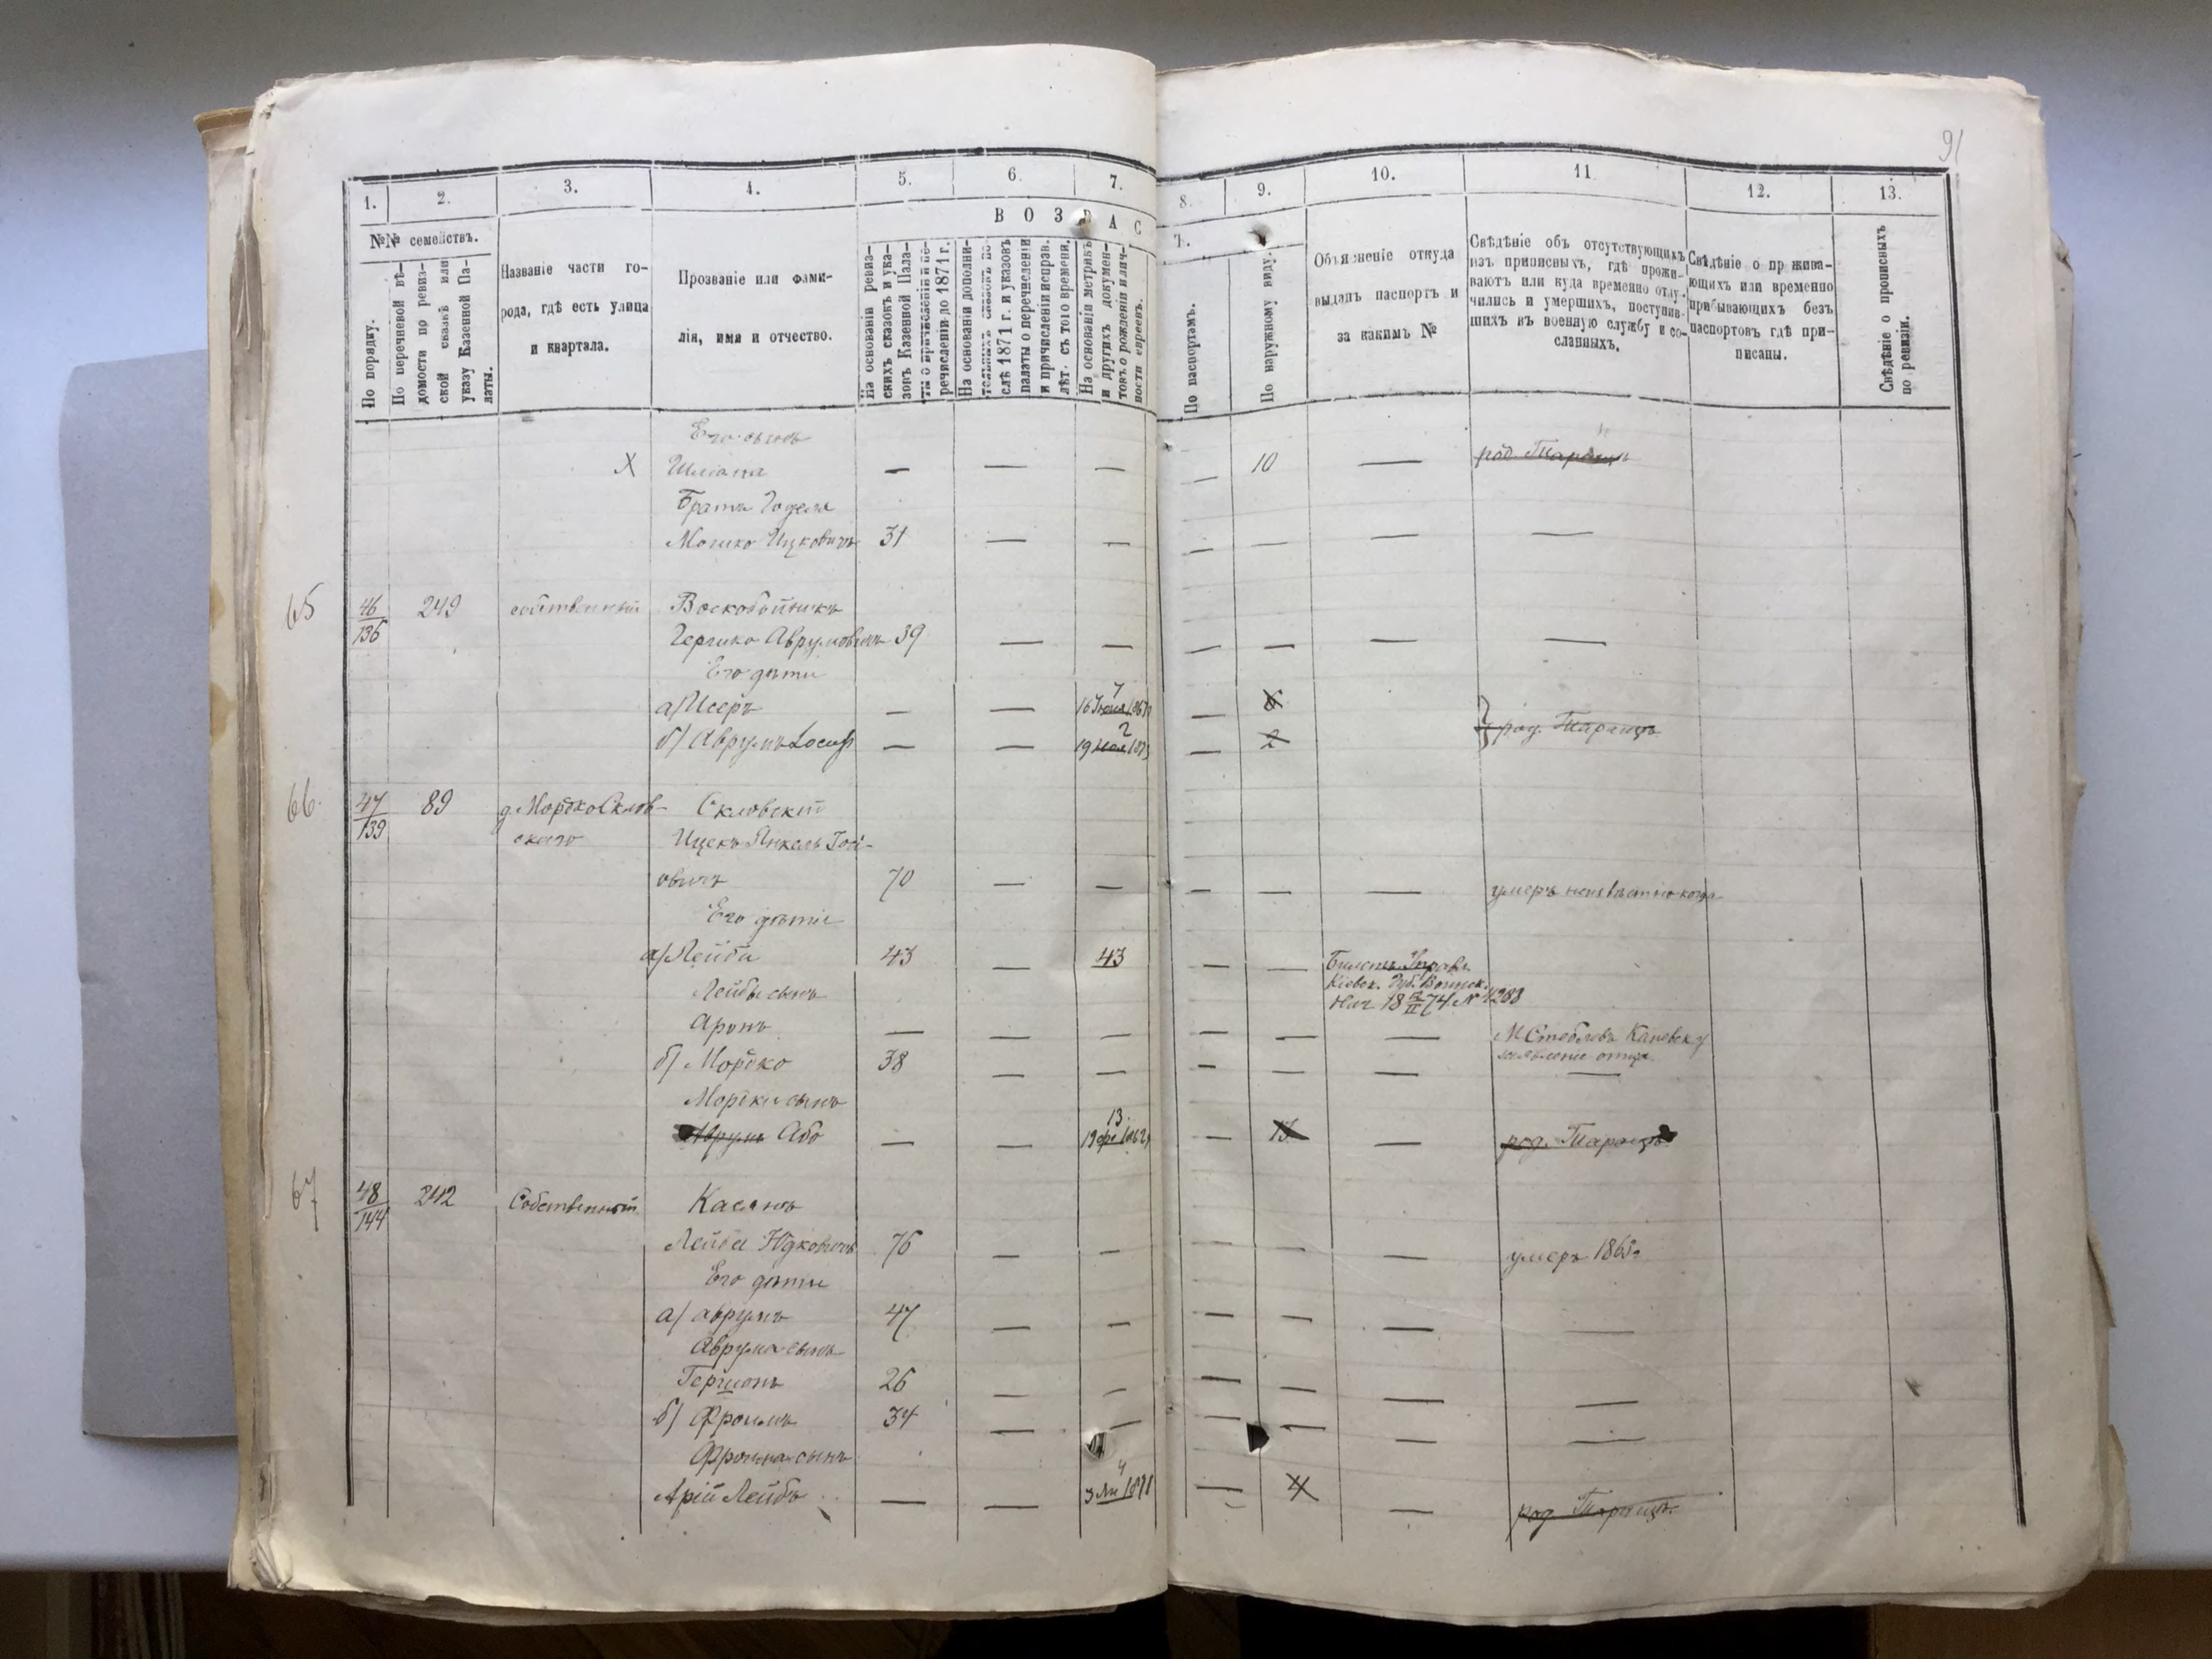 91
1. 2. 3. 4. 5. 6. 7. 8. 9. 10. 11 12. 13.
№№ семействъ.
В О З Р А С Т.
По порядку.
По перечневой вѣ-
домости по ревиз-
ской сказкѣ или
указу Казенной Па-
латы.
Названіе части го-
рода, гдѣ есть улица
и квартала.
Прозваніе или фами-
лія, имя и отчество.
На основаніи ревиз-
скихъ сказокъ и ука-
зовъ Казенной Пала-
ты о причисленіи и пе-
речисленіи до 1871 г.
На основаніи дополни-
тельныхъ сказокъ по-
слѣ 1871 г. и указовъ
палаты о перечисленіи
и причисленіи исправ.
лѣт. съ того времени.
На основаніи метрикъ
и другихъ докумен-
товъ о рожденіи и лич-
ности евреевъ.
По паспортамъ.
По наружному виду.
Объясненіе откуда
выданъ паспортъ и
за какимъ №
Свѣдѣніе объ отсутствующихъ
изъ приписныхъ, гдѣ прожи-
ваютъ или куда временно отлу-
чились и умершихъ, поступив-
шихъ въ военную службу и со-
сланныхъ.
Свѣдѣніе о прожива-
ющихъ или временно
прибывающихъ безъ
паспортовъ гдѣ при-
писаны.
Свѣдѣніе о прописныхъ
по ревизіи.
Его сынъ
X Шліома — — — — 10 — род. Таращѣ
Братъ Годеля
Мошко Ицковичъ 31 — — — — — —
65 46/136 249 собственный Воскобойникъ
Гершко Аврумовичъ 39 — — — — — —
Его дѣти
а) Исеръ — — — 6
б) Аврумъ Іосиф — — 2 — 2 род. Таращѣ
66. 47/139 89 д. Мордко Склов- Скловскій
скаго Ицекъ Янкель Іосі-
овичъ 70 — — — — — умеръ неизвѣстно когда
Его дѣти
а) Лейба 43 — 43 — —
Кіевск. Губ. Воинск.
Лейбы сынъ
Аронъ — — — — — — М Стеблевъ Каневск у
заявленіе отца.
б) Мордко 38 — — — — — —
Мордки сынъ
13
Аврумъ Або — — — 13 — род. Таращѣ
67 48/144 242 Собственный Касянъ
Лейба Юдковичъ 76 — — — — — умеръ
Его дѣти
а) Аврумъ 47 — — — — — —
Аврума сынъ
Гершонъ 26 — — — — — —
б) Фроимъ 34 — — — — — —
Фроима сынъ
4
Арій Лейбъ — — — 4 — род. Таращѣ